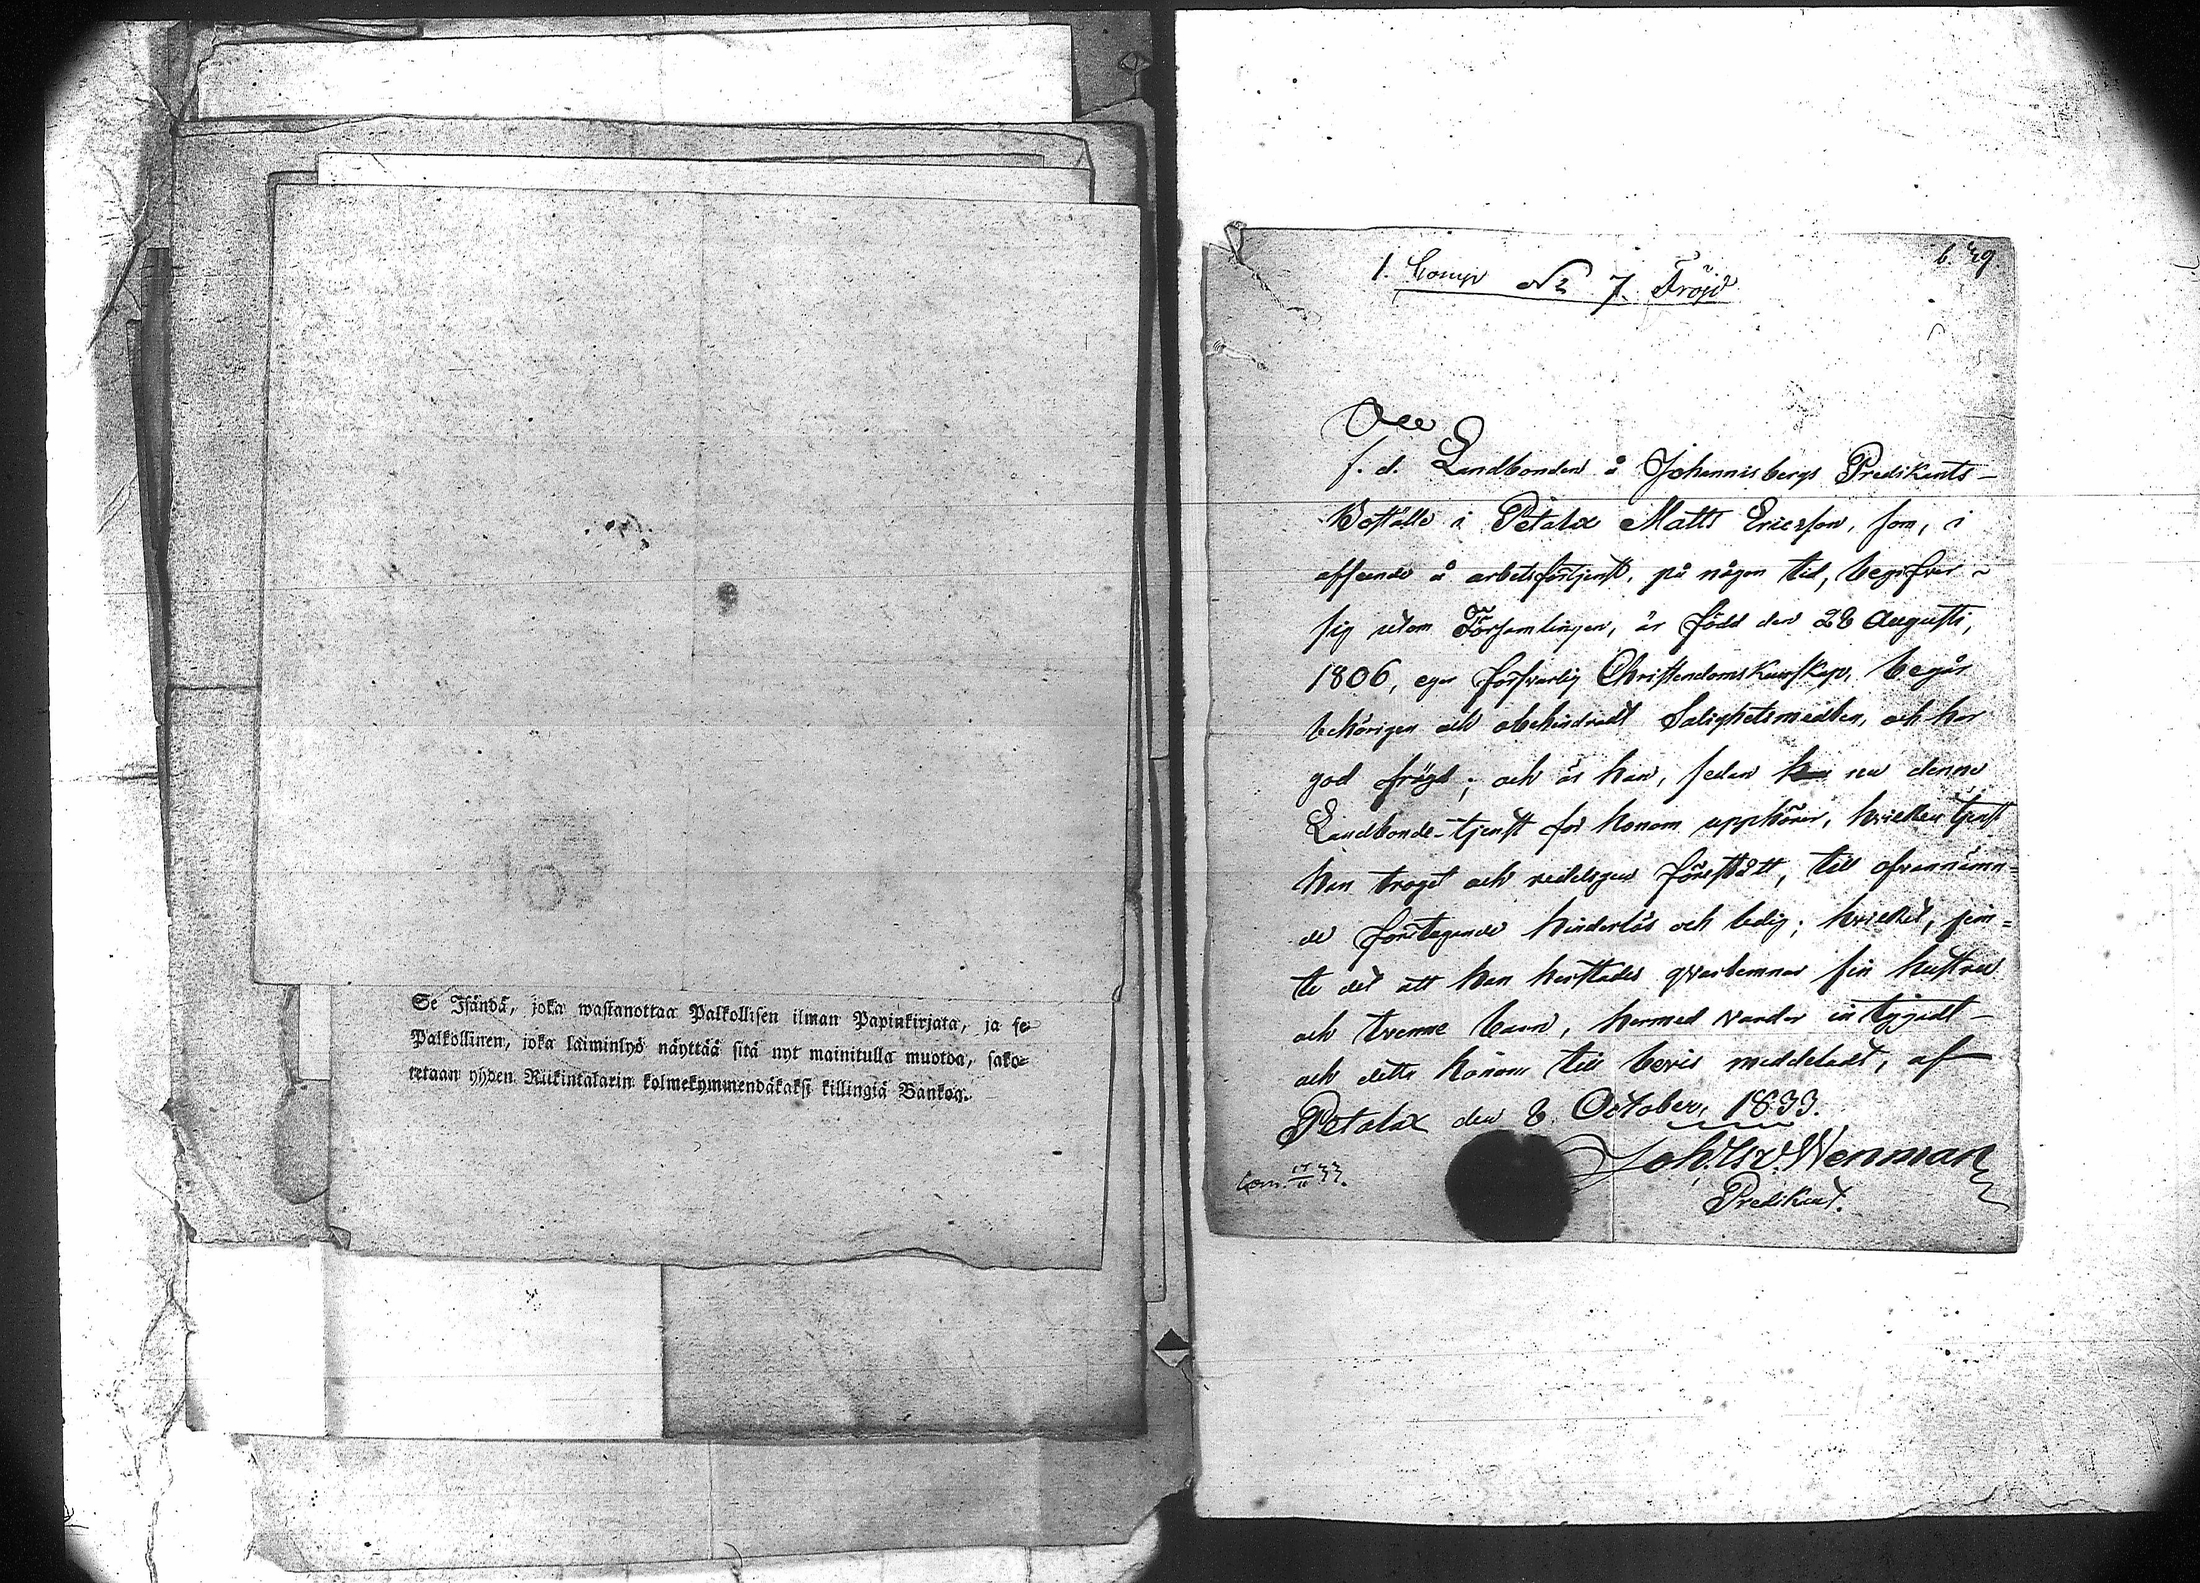 Se Isändä, joka wastanottaa Palkollisen ilman Papinkirjata, ja se
Palkollinen, joka laiminlyö näyttää sitä nyt mainitulla muotoa, sako-
tetaan yhden Riikintalarin kolmekymmendäkaksi killingiä Bankog.
1. Comp No 7. Fröjd
b. 49.
Att
f. d. Landbonden å Johannisbergs Predikants-
Boställe i Petalax Matts Ericsson, som, i
afseende å arbetsförtjenst, på någon tid, begifver
sig utom Församlingen, är född den 28 Augusti,
1806, eger försvarlig Christendomskunskap, begår
behörigen och obehindradt Salighetsmedlen, och har
god frägd; och är han, sedan nu denne
Landbonde-tjenst för honom upphörer, hvilken tjenst
han troget och redeligen förestått, till ofvannämn=
de företagande hinderlös och ledig; hvilket, jem=
te det att han härstädes qvarlemnar sin hustru
och trenne barn, hermed varder intygadt
och detta honom till bevis meddeladt, af
Petalax den 8 October, 1833.
Joh. Wenman
Predikant.
17/11 33.